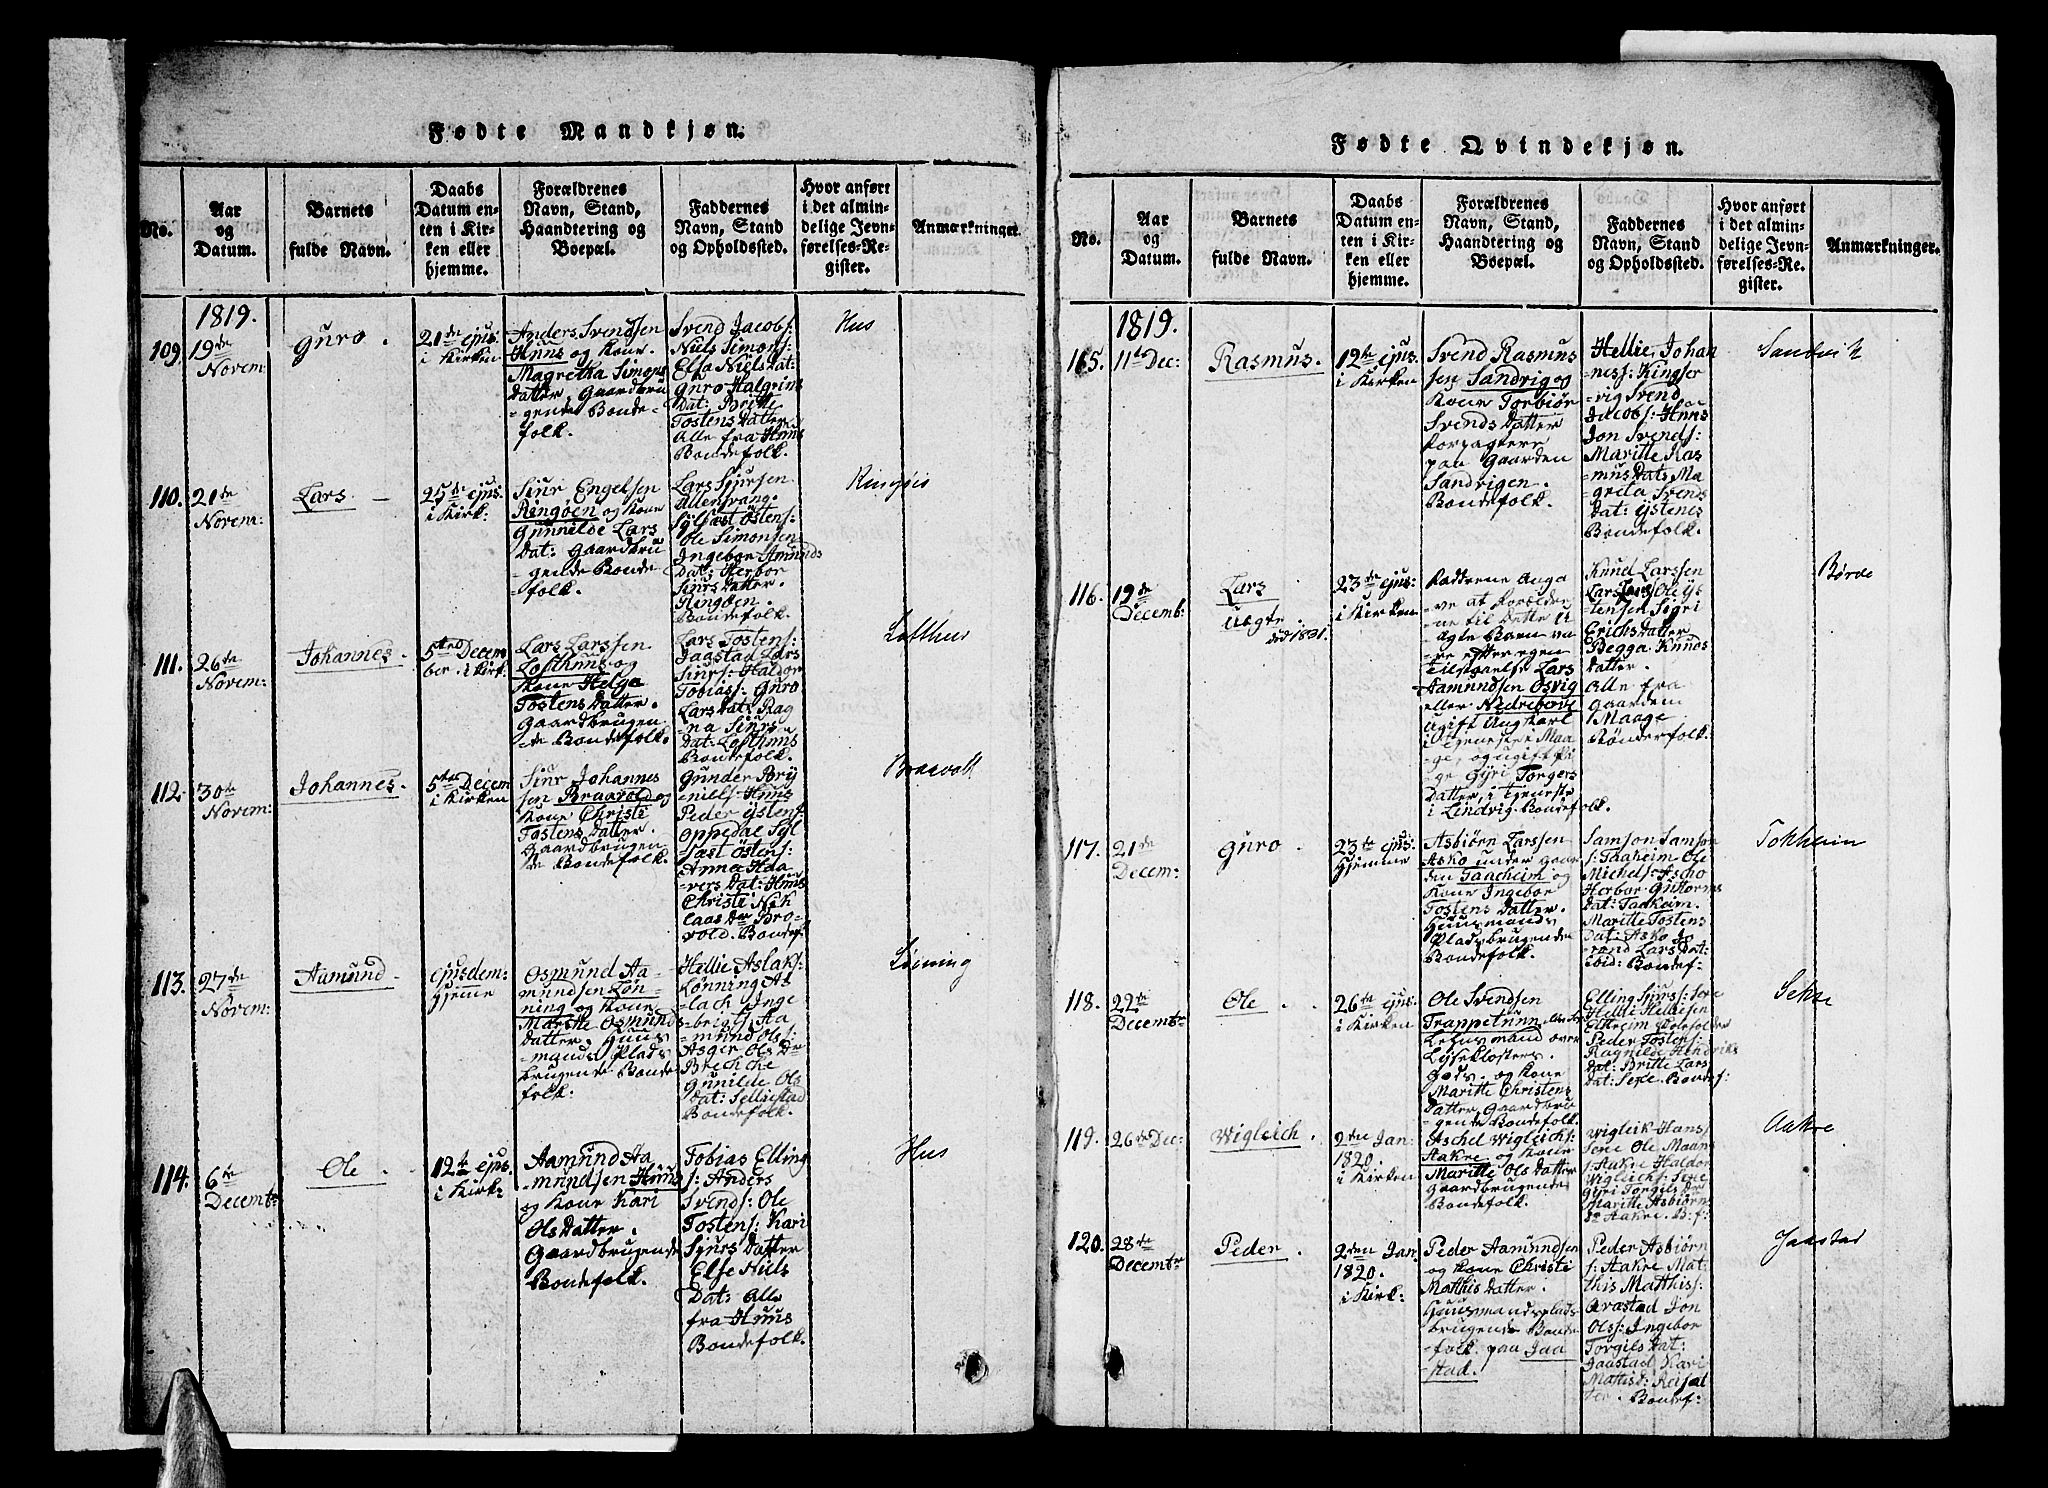 Fødte Mandkjøn.
No.
Aar
og
Datum.
Barnets
fulde Navn.
Daabs
Datum en-
ten i Kir-
ken eller
hjemme.
Forældrenes
Navn, Stand,
Haandtering og
Boepæl.
Faddernes
Navn, Stand
og Opholdssted.
Hvor anført
i det almin-
delige Jevn-
førelses-Re-
gister.
Anmærkninger.
1819.
109.
19de
Novem:
Guro.
21de ejus:
i Kirken
Anders Svendsen
Huus og Kone
Magretha Simons
Datter. Gaardbru
-gende Bonde-
folk.
Svend Jacobs:
Niels Simons:
Elsa Niels Dat:
Guro Halgrim
Dat: Britte
Tostens Datter
Alle fra Huus
Bondefolk.
Hus
110.
21de
Novem:
Lars
25de ejus:
i Kirk:
Siur Engelsen
Ringøen og Kone
Gunnilde Lars
Dat: Gaardbru
-gende Bonde
folk.
Lars Sjursen
Ullensvang.
Sylfæst Östens:
Ole Simonsen
Ingebor Amunds
Dat: Herbor
Siurs Datter.
Ringøen.
Bondefolk.
Ringøis
111.
26de
Novem:
Johannes.
5te Decem
ber. i Kirk.
Lars Larssen
Lofthuus og
Kone Helga
Tostens Datter.
Gaardbrugen
de Bondefolk.
Lars Tostens:
Jaastad Lars
Siurs: Haldor
Tobias: Guro
Lars Dat: Rag
na Siurs
Dat: Lofthuus
Bondefolk.
Lofthus
112.
30te
Novem:
Johannes.
5te Decem
i Kirken
Siur Johannes
sen Braavold og
Kone Christi
Tostens Datter.
Gaardbrugen
de Bondefolk.
Gunder Bry
niels: Huus
Peder Ystens:
Oppedal Syl
fæst Östens:
Anna Haa
vers Dat: Huus
Christi Nik
laas Dr Bro-
vold. Bondef:
Braavoll
113.
27de
Novem:
Aamund
Ejusdem:
hjemme
Osmund Aa-
mundsen Løn-
ning og Kone
Maritte Osmunds
Datter. Huus
mands Plads
brugende Bonde
folk:
Hellie Aslaks:
Lønning As
lach Inge
-brigts: Aa
mund Ols:
Asger Ols Dr
Brechche
Gunilde Ols
Dat: Selliestad
Bondefolk.
Løining
114.
6te
Decembr:
Ole
12te ejus:
i Kirk:
Aamund Aa
-mundsen Huus
og Kone Kari
Ols Datter.
Gaardbrugende
Bondefolk.
Tobias Elling
s: Anders
Svends: Ole
Tostens: Kari
Sjurs Datter
Else Niels
Dat: Alle
fra Huus
Bondefolk.
Hus
Fødte Qvindekjøn.
No.
Aar
og
Datum.
Barnets
fulde Navn.
Daabs
Datum en-
ten i Kir-
ken eller
hjemme.
Forældrenes
Navn, Stand,
Haandtering og
Boepæl.
Faddernes
Navn, Stand
og Opholdssted.
Hvor anført
i det almin-
delige Jevn-
førelses-Re-
gister.
Anmærkninger.
1819.
115.
11te Dec:
Rasmus.
12te ejus:
i Kirken
Svend Rasmus
sen Sandvig og
Kone Torbiør
Svends Datter
Forpagtere
paa Gaarden
Sandvigen.
Bondefolk.
Hellie Johan
ness: Kingser
-vig Svend
Jacobs: Huus
Jon Svends:
Maritte Ras
mus Dat: Ma
-greta Svends
Dat: Ystenes
Bondefolk.
Sandvik
116.
19de
Decemb:
Lars
uægte.
død 1821.
23de ejus:
i Kirken
Fadderne Anga
-ve at Forælder
ne til Dette U
ægte Barn va
re efter egen
tilstaaelse Lars
Aamundsen Osvig
eller Nedrebøve
Ugift Ungkarl
i tjeneste i Maa
-ge, og ugift Pi
ge Gyri Torgers
Datter, i tjeneste
i Lindvig. Bondefolk.
Knud Larssen
Lars Ole Ys
-tensen Sigri
Erichs Datter
Begga Knuds
Datter.
Alle fra
Gaarden
Maage.
Bønderfolk.
Børve
117.
21de
Decem:
Guro
23de ejus:
hjemme
Asbiørn Larssen
Asko under Gaar
den Taaheim og
Kone Ingebor
Tostens Datter.
Huusmands
Pladsbrugende
Bondefolk.
Samson Samson
s: Taaheim Ole
Michels: Ascho
Herbor Guttorms
Dat: Taaheim.
Maritte Tostens
Dat: Asko Jo
rend Lars Dat:
ibid: Bondef:
Tokheim
118.
22de
Decembr
Ole
26de ejus:
i Kirken
Ole Svendsen
Trappetuun
Lehnsmand over
Lyseklosters
Gods. og Kone
Maritte Christens
Datter, Gaardbru
gende Bondefolk.
Elling Sjurs: Sexe
Hellie Hellesen
Elkheim
Peder Tostens:
Ragnilde Hendriks
Dat: Britte Lars
Dat: Sexe. Bondef:
Sekse
119.
26de Dec:
Wigleich.
2den Jan:
1820.
i Kirken
Aschel Wigleichs:
Aakre og Kone
Maritte Ols Datter
Gaardbrugende
Bondefolk.
Wigleik Hans
Sexe Ole Maans
s: Aakre Haldor
Wigleichs: Sexe
Gyri Torgils Dr
Maritte Asbiørns
Dr Aakre. B: f:
Aakre
120.
28de
Decembr
Peder.
2den Jan
1820.
i Kirk:
Peder Aamundsen
og Kone Christi
Matthis Datter.
Huusmandsplads
brugende Bonde
-folk. paa Jaa
stad.
Peder Asbiørn
s: Aakre Mat
this Matthis:
Aarastad Jon
Ols: Ingebor
Torgils Dat:
Jaastad Kari
Bondef:
Jaastad